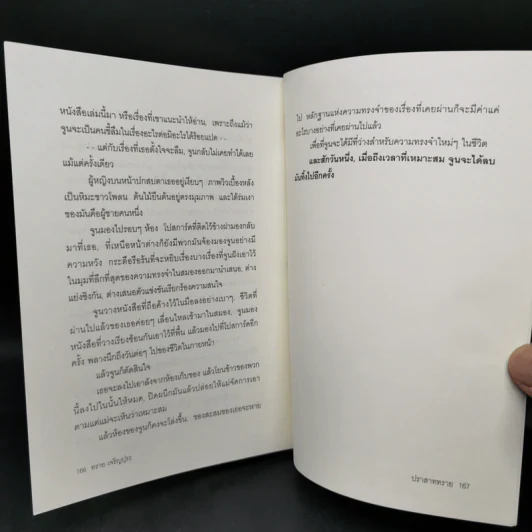 หนังสือเล่มนี้มา หรือเรื่องที่เขาแนะนำให้อ่าน, เพราะถึงแม้ว่า
จูนจะเป็นคนขี้ลืมในเรื่องอะไรต่อมิอะไรได้ร้อยแปด --
-- แต่กับเรื่องที่เธอตั้งใจจะลืม, จูนกลับไม่เคยทำได้เลย
แม้แต่ครั้งเดียว
ผู้หญิงบนหน้าปกสบตาเธออยู่เงียบๆ ภาพวิวเบื้องหลัง
เป็นหิมะขาวโพลน ต้นไม้ยืนต้นอยู่ตรงมุมภาพ และใต้ร่มเงา
ของมันคือผู้ชายคนหนึ่ง
จูนมองไปรอบๆ ห้อง โปสการ์ดที่ติดไว้ข้างฝามองกลับ
มาที่เธอ, ที่เหนือหน้าต่างก็ยังมีพวกมันจ้องมองจูนอย่างมี
ความหวัง กระตือรือร้นที่จะหยิบเรื่องบางเรื่องที่จูนฝังเอาไว้
ในมุมที่ลึกที่สุดของความทรงจำในสมองออกมานำเสนอ, ต่าง
แย่งชิงกัน, ต่างเสนอตัวแข่งขันเรียกร้องความสนใจ
จูนวางหนังสือที่ถือค้างไว้ในมือลงอย่างเบาๆ. ชีวิตที่
ผ่านไปแล้วของเธอค่อยๆ เลื่อนไหลเข้ามาในสมอง, จูนมอง
หนังสือที่วางเรียงซ้อนกันเอาไว้ที่พื้น แล้วมองไปที่โปสการ์ดอีก
ครั้ง พลางนึกถึงวันต่อๆ ไปของชีวิตในภายหน้า
แล้วจูนก็ตัดสินใจ
เธอจะลงไปเอาลังจากห้องเก็บของ แล้วโยนเจ้าของพวก
นี้ลงไปในนั้นให้หมด, ปิดผนึกมันแล้วปล่อยให้แม่จัดการเอา
ตามแต่แม่จะเห็นว่าเหมาะสม
แล้วห้องของจูนก็คงจะโล่งขึ้น. ของสะสมของเธอจะหาย
166 ทราย เจริญปุระ
ไป หลักฐานแห่งความทรงจำของเรื่องที่เคยผ่านก็จะมีค่าแค่
อะไรบางอย่างที่เคยผ่านไปแล้ว
เพื่อที่จูนจะได้มีที่ว่างสำหรับความทรงจำใหม่ๆ ในชีวิต
และสักวันหนึ่ง, เมื่อถึงเวลาที่เหมาะสม จูนจะได้ลบ
มันทิ้งไปอีกครั้ง
ปราสาททราย 167